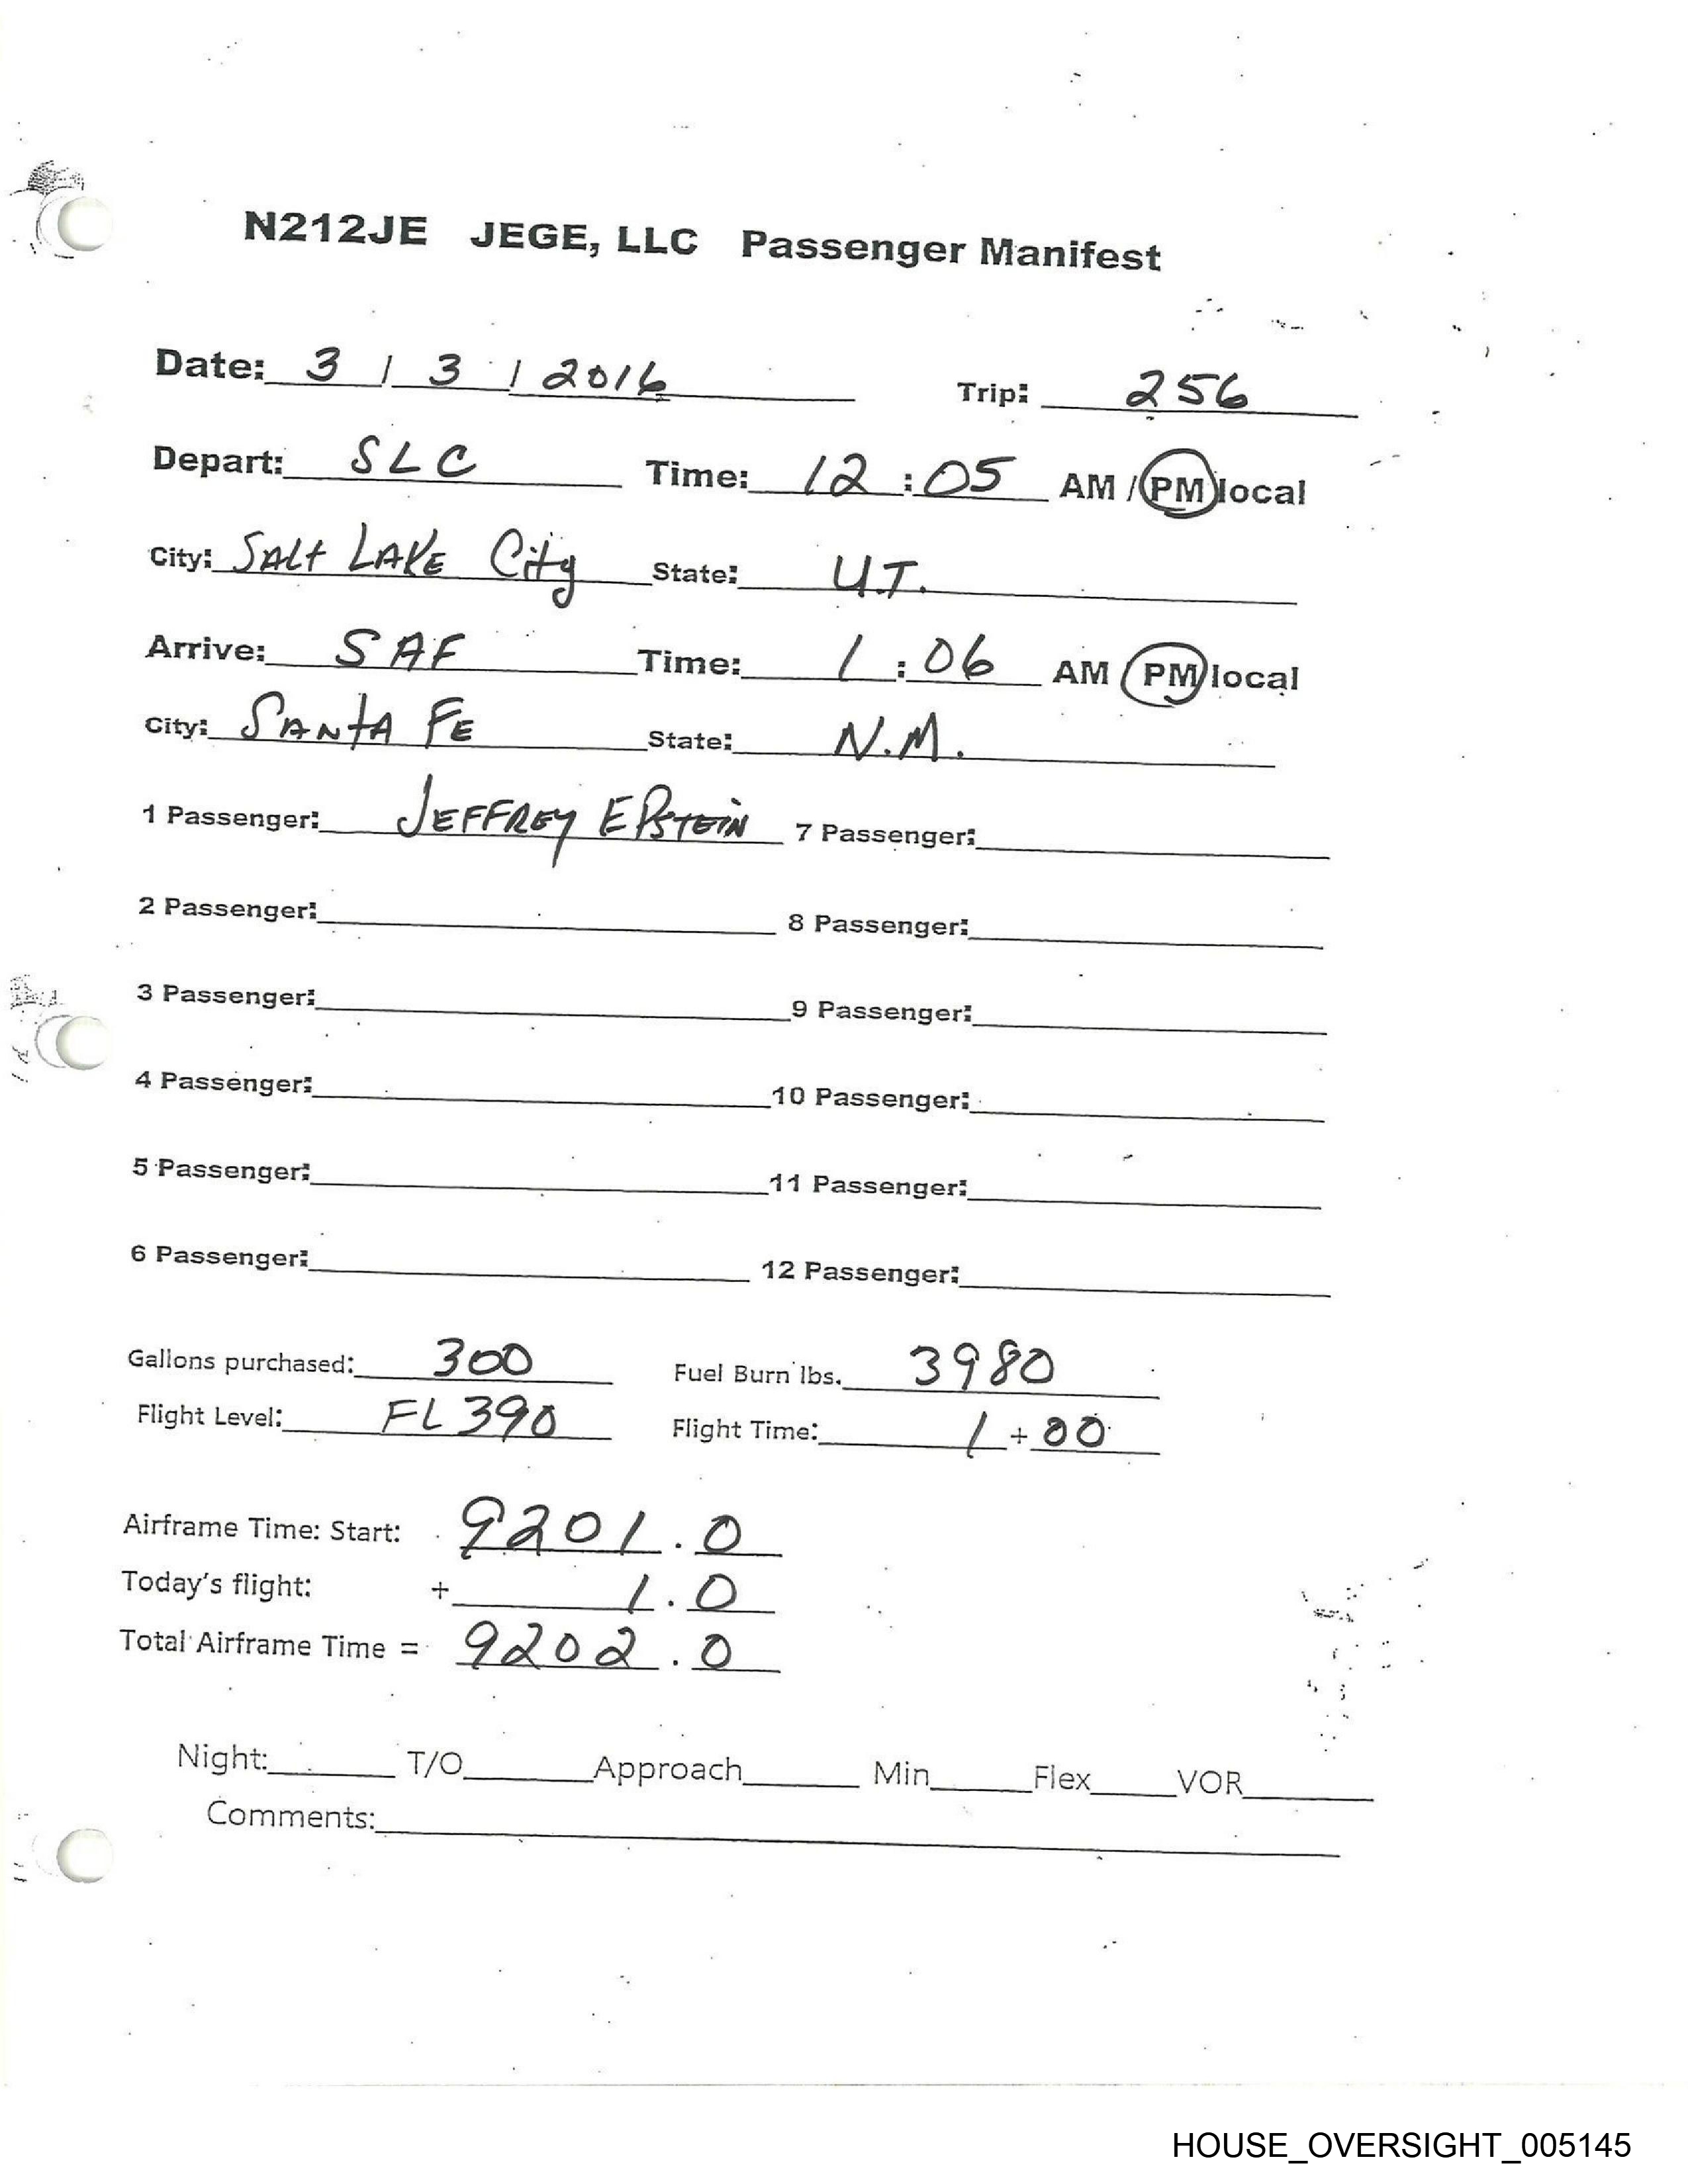 N212JE JEGE, LLC Passenger Manifest
Date: 3 / 3 / 2016 Trip: 256
Depart: SLC Time: 12:05 AM / PM local
City: Salt Lake City State: U.T.
Arrive: SAF Time: 1:06 AM / PM local
City: Santa Fe State: N.M.
1 Passenger: Jeffrey Epstein 7 Passenger:
2 Passenger: 8 Passenger:
3 Passenger: 9 Passenger:
4 Passenger: 10 Passenger:
5 Passenger: 11 Passenger:
6 Passenger: 12 Passenger:
Gallons purchased: 300 Fuel Burn lbs. 3980
Flight Level: FL390 Flight Time: 1 + 00
Airframe Time: Start: 9201.0
Today's flight: + 1.0
Total Airframe Time = 9202.0
Night: T/O Approach Min Flex VOR
Comments:
HOUSE_OVERSIGHT_005145